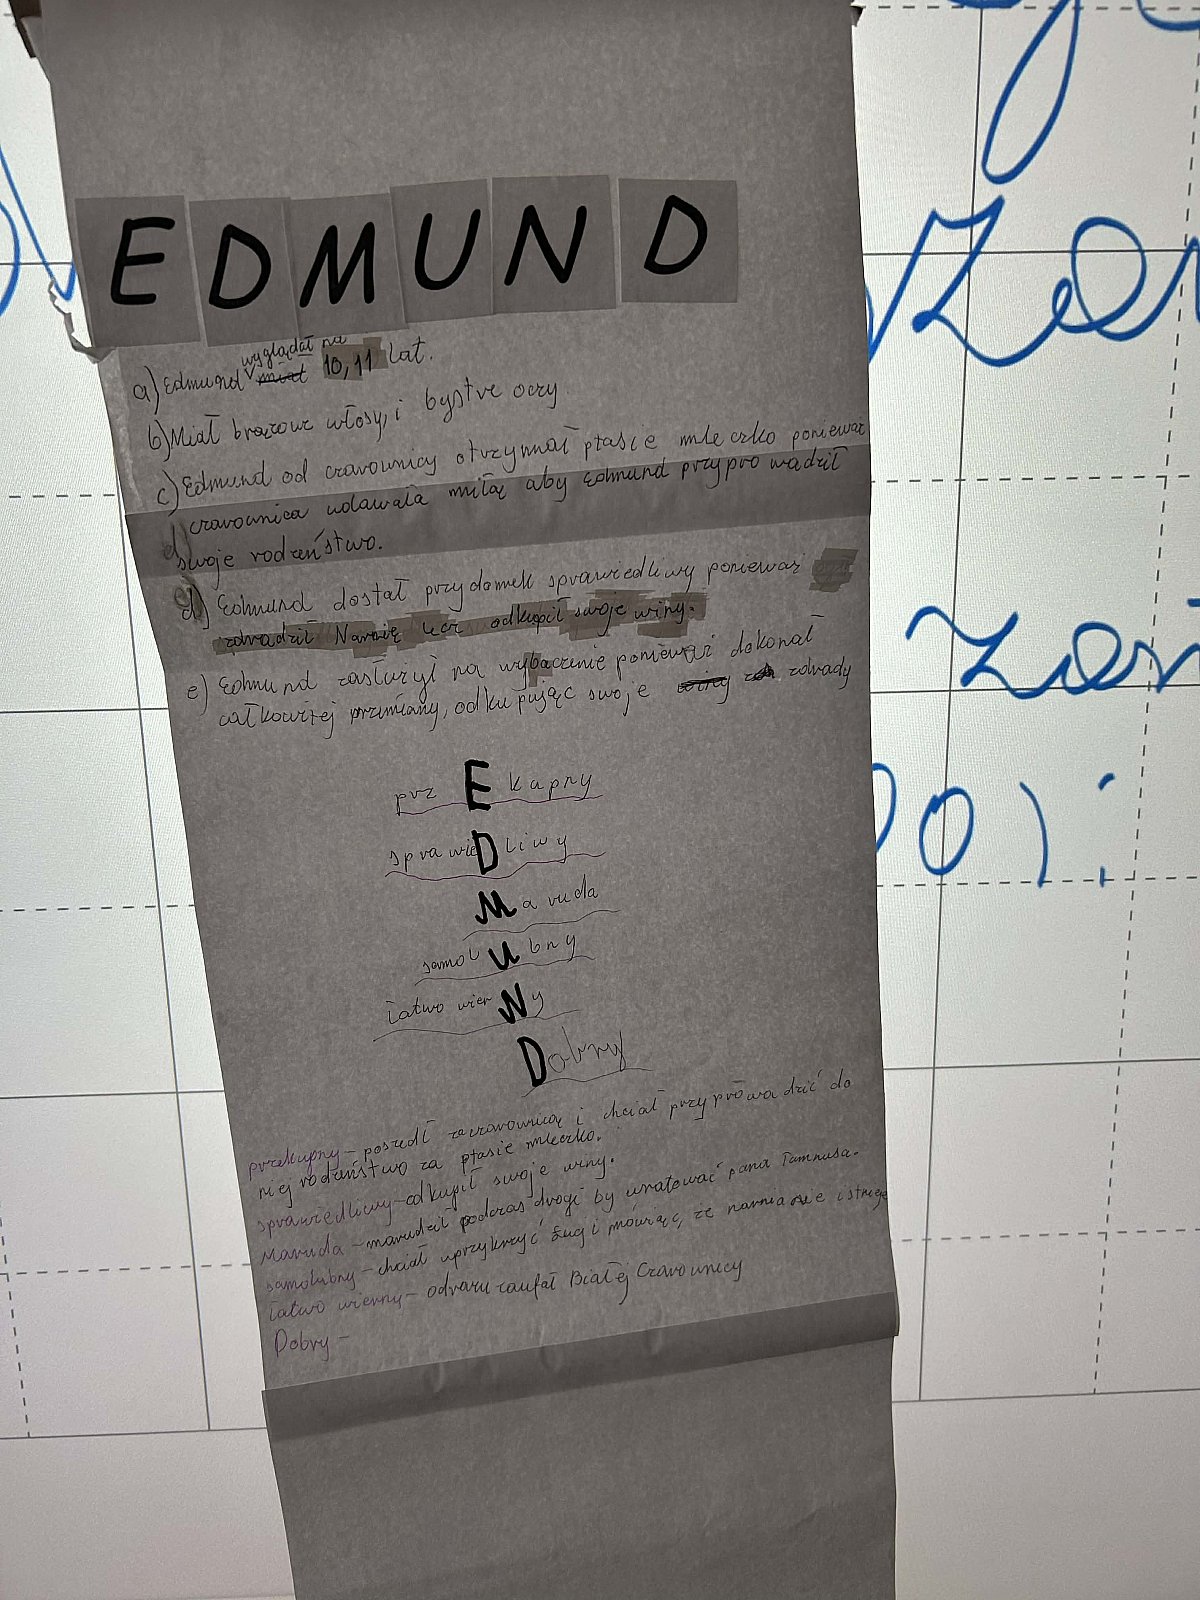 EDMUND
wyglądał na
a) Edmund miał 10, 11 lat.
b) Miał brązowe włosy, i bystre oczy
c) Edmund od czarownicy otrzymał ptasie mleczko ponieważ
czarownica udawała miłą aby Edmund przyprowadził
swoje rodzeństwo.
d) Edmund dostał przydomek sprawiedliwy ponieważ
zdradził Narnię lecz odkupił swoje winy.
e) Edmund zasłużył na wybaczenie ponieważ dokonał
całkowitej przemiany, odkupując swoje winy zdrady
przEkupny
sprawieDliwy
Maruda
samolUbny
łatwo wierNy
Dobry
przekupny - poszedł za czarownicą i chciał przyprowadzić do
niej rodzeństwo za ptasie mleczko.
sprawiedliwy - odkupił swoje winy.
Maruda - marudził podczas drogi by uratować pana Tamnusa.
samolubny - chciał uprzykrzyć Łucji mówiąc, że narnia nie istnieje
łatwo wierny - odrazu zaufał Białej Czarownicy
Dobry -